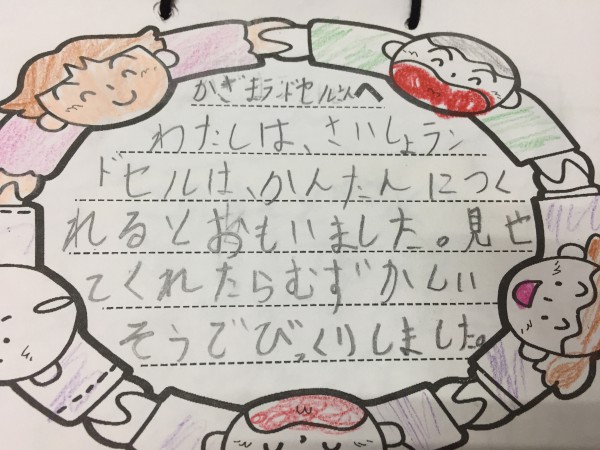 かざまランドセルさんへ
わたしは、さいしょラン
ドセルは、かんたんにつく
れるとおもいました。見せ
てくれたらむずかしい
そうでびっくりしました。